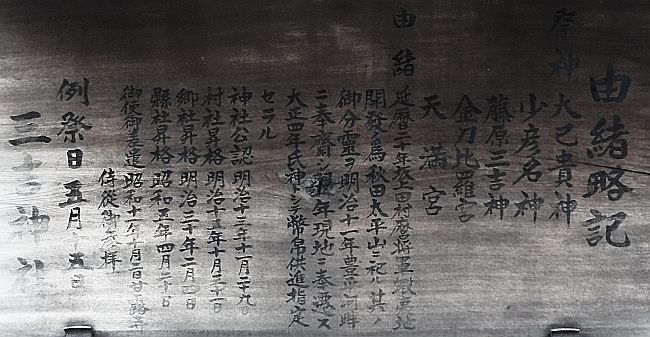 由緒略記
祭神 大己貴神
少彦名神
藤原三吉神
金刀比羅宮
天満宮
由緒 延暦二十年坂上田村麿将軍
開發ノ為秋田太平山ニ祀ル其ノ
御分靈ヲ明治十一年豊平河畔
ニ奉齋シ翌年現地ニ奉遷ス
大正四年氏神トシ幣帛供進指定
セラル
神社公認 明治十二年十一月二十九日
村社昇格 明治十年十月三十一日
郷社昇格 明治三十年二月日
縣社昇格 昭和五年四月二十日
御使御差遣 昭和十一年十月
侍従御参拝
例祭日 五月十五日
三吉神社